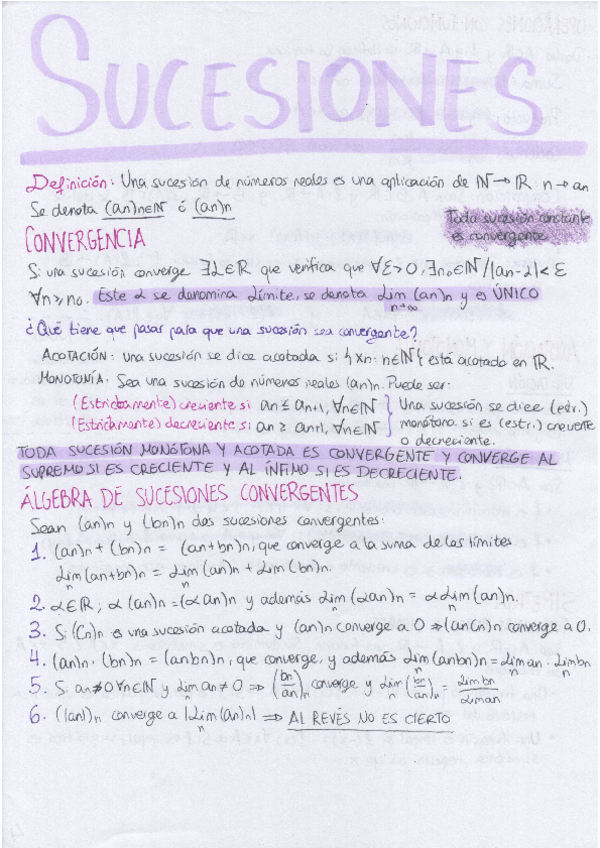 SUCESIONES
Definición: Una sucesión de números reales es una aplicación de ℕ → ℝ n → an
Se denota (an)n∈ℕ ó (an)n
Toda sucesión constante
es convergente
CONVERGENCIA
Si una sucesión converge ∃α∈ℝ que verifica que ∀ε>0, ∃n₀∈ℕ/|an-α|<ε
∀n≥n₀. Este α se denomina Límite, se denota Lim (an)n y es ÚNICO
n→∞
¿Qué tiene que pasar para que una sucesión sea convergente?
ACOTACIÓN: una sucesión se dice acotada si {xn: n∈ℕ} está acotado en ℝ.
MONOTONÍA: Sea una sucesión de números reales (an)n. Puede ser:
(Estrictamente) creciente si an ≤ an+1, ∀n∈ℕ
(Estrictamente) decreciente si an ≥ an+1, ∀n∈ℕ
Una sucesión se dice (estr.)
monótona si es (estr.) creciente
o decreciente.
TODA SUCESIÓN MONÓTONA Y ACOTADA ES CONVERGENTE Y CONVERGE AL
SUPREMO SI ES CRECIENTE Y AL ÍNFIMO SI ES DECRECIENTE.
ÁLGEBRA DE SUCESIONES CONVERGENTES
Sean (an)n y (bn)n dos sucesiones convergentes:
1. (an)n + (bn)n = (an+bn)n, que converge a la suma de los límites
Lim(an+bn)n = Lim(an)n + Lim(bn)n.
n n n
2. α∈ℝ; α(an)n = (αan)n y además Lim(αan)n = αLim(an)n.
n n
3. Si (Cn)n es una sucesión acotada y (an)n converge a 0 ⇒ (anCn)n converge a 0.
4. (an)n · (bn)n = (anbn)n, que converge, y además Lim(anbn)n = Liman · Limbn
n n n
5. Si an≠0 ∀n∈ℕ y Lim an ≠ 0 ⇒ (bn/an)n converge y Lim(bn/an)n = Limbn/Liman
n
6. (|an|)n converge a |Lim(an)n| ⇒ AL REVÉS NO ES CIERTO
n